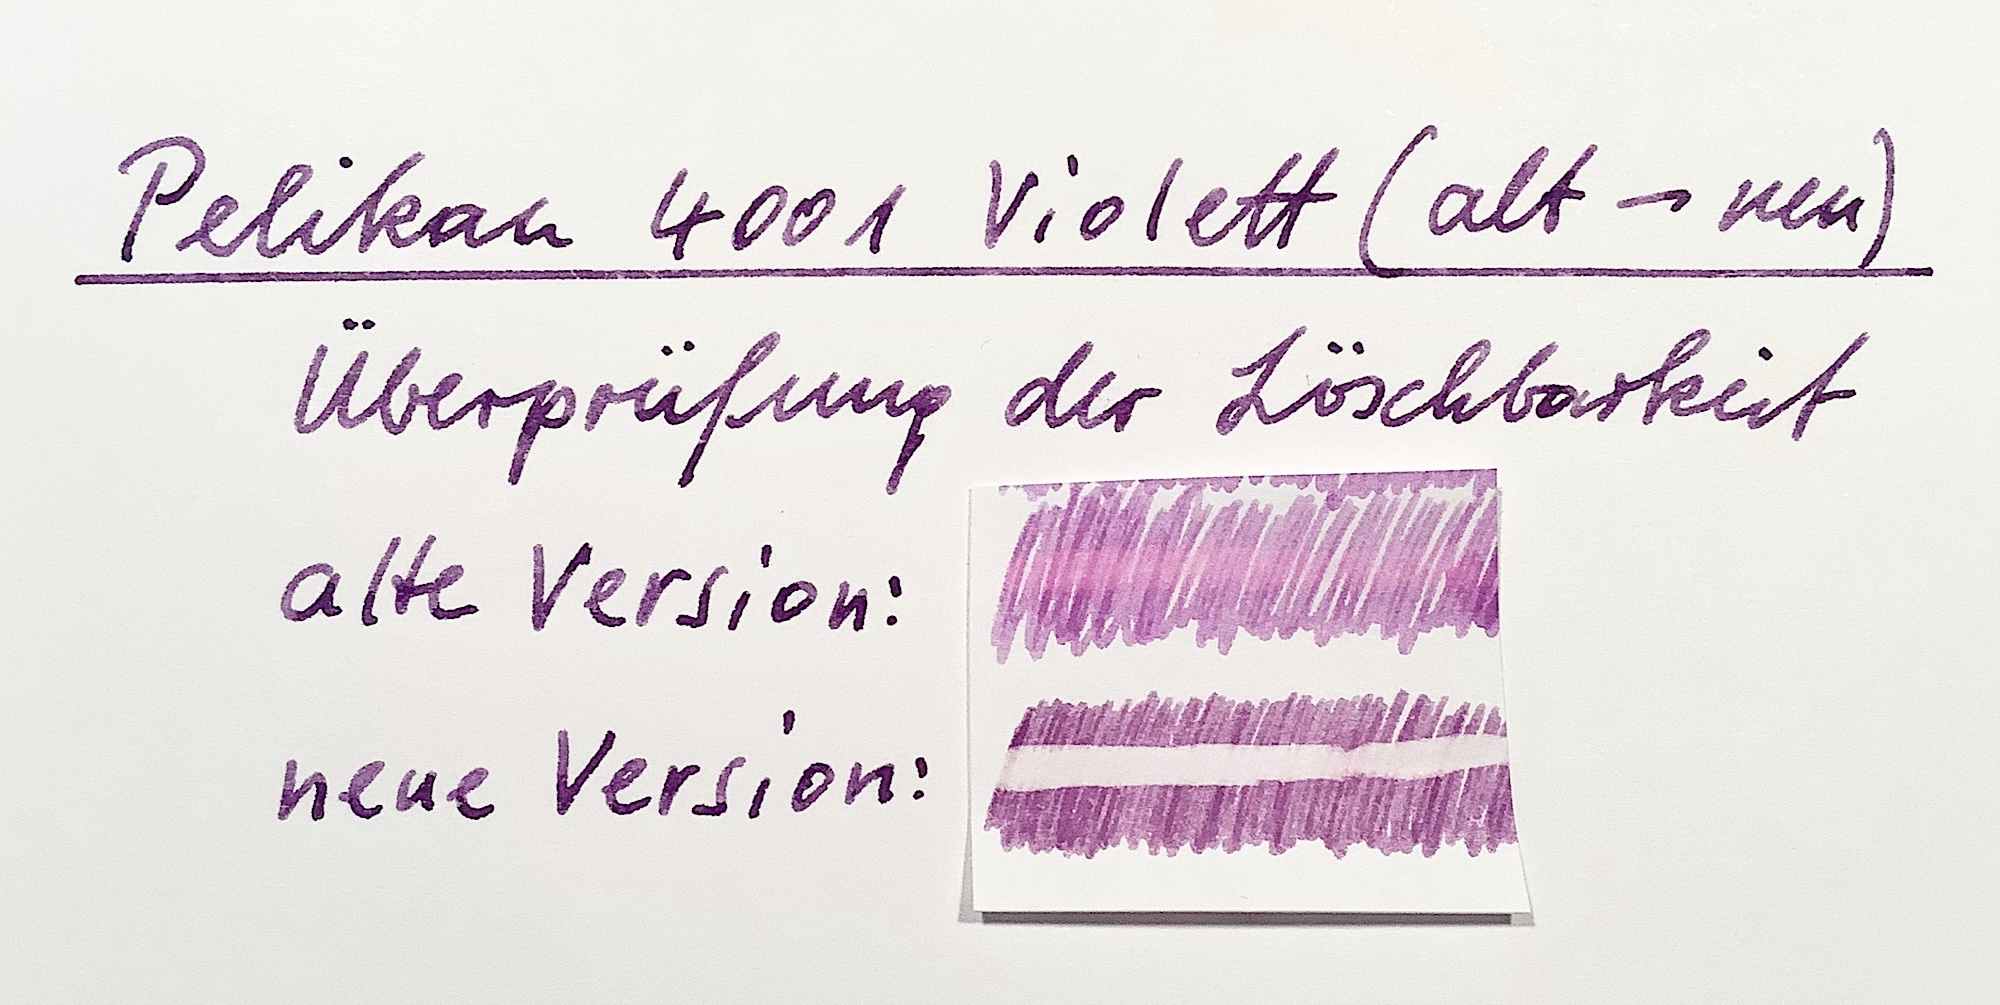 Pelikan 4001 Violett (alt → neu)
Überprüfung der Löschbarkeit
alte Version:
neue Version: